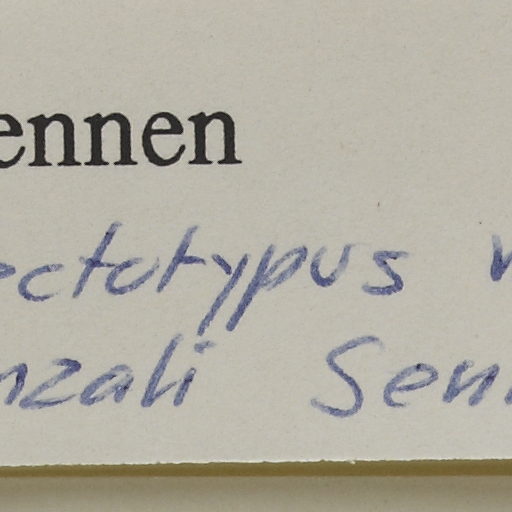 ennen
ectotypus v
nzali Senn